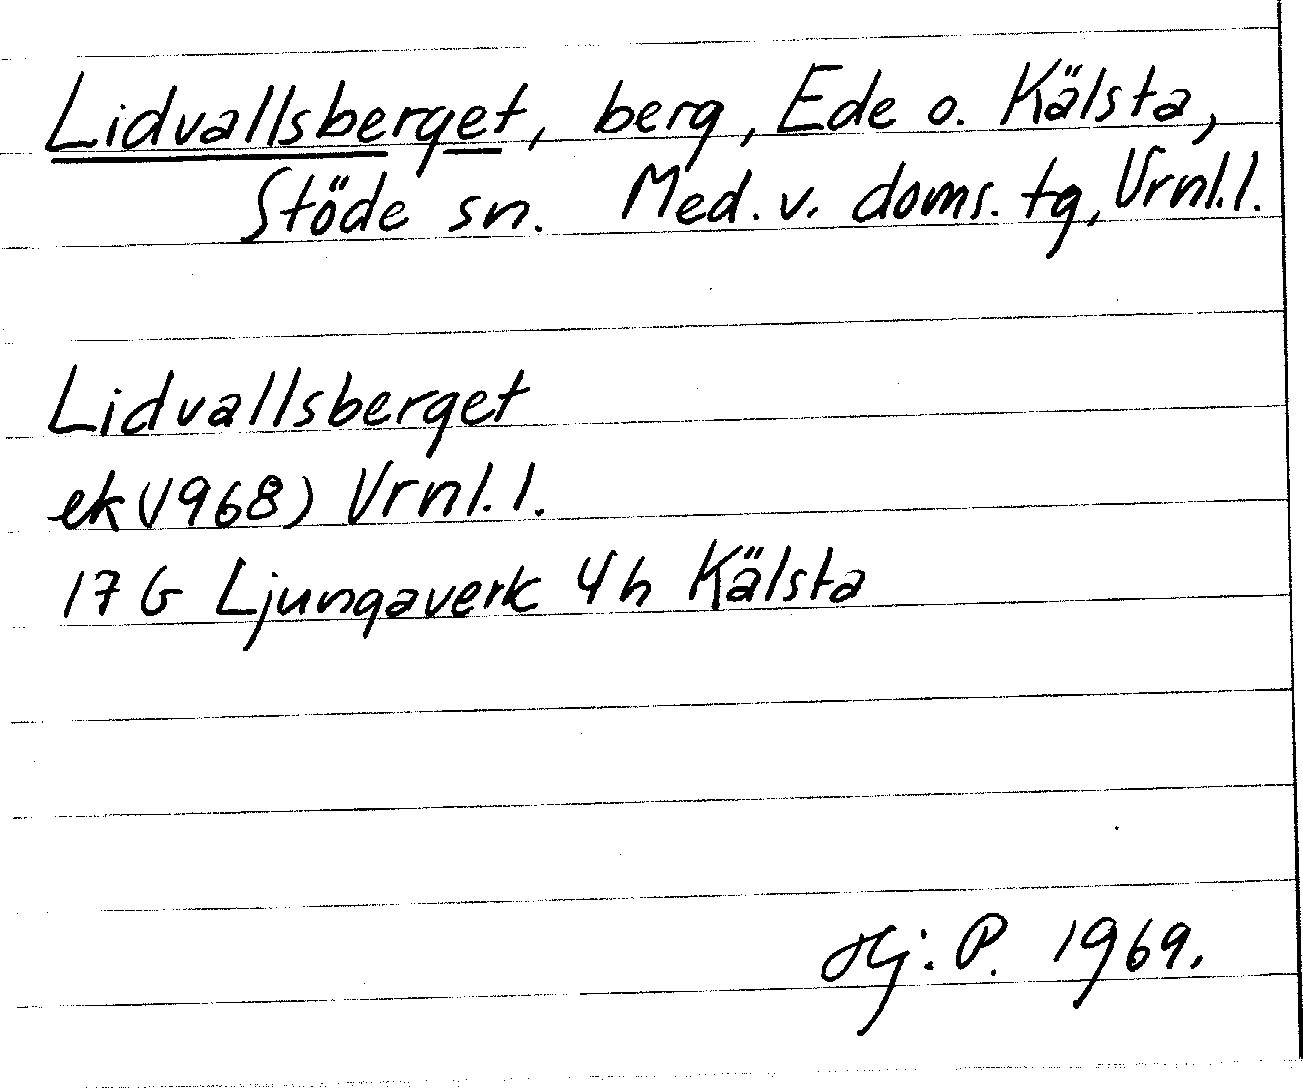 Lidvallsberget, berg, Ede o. Kälsta,
Stöde sn. Med. v. doms. tg, Vrnl. l.
Lidvallsberget
ek (1968) Vrnl. l.
17 G Ljungaverk 4 h Kälsta
Hj. P. 1969.